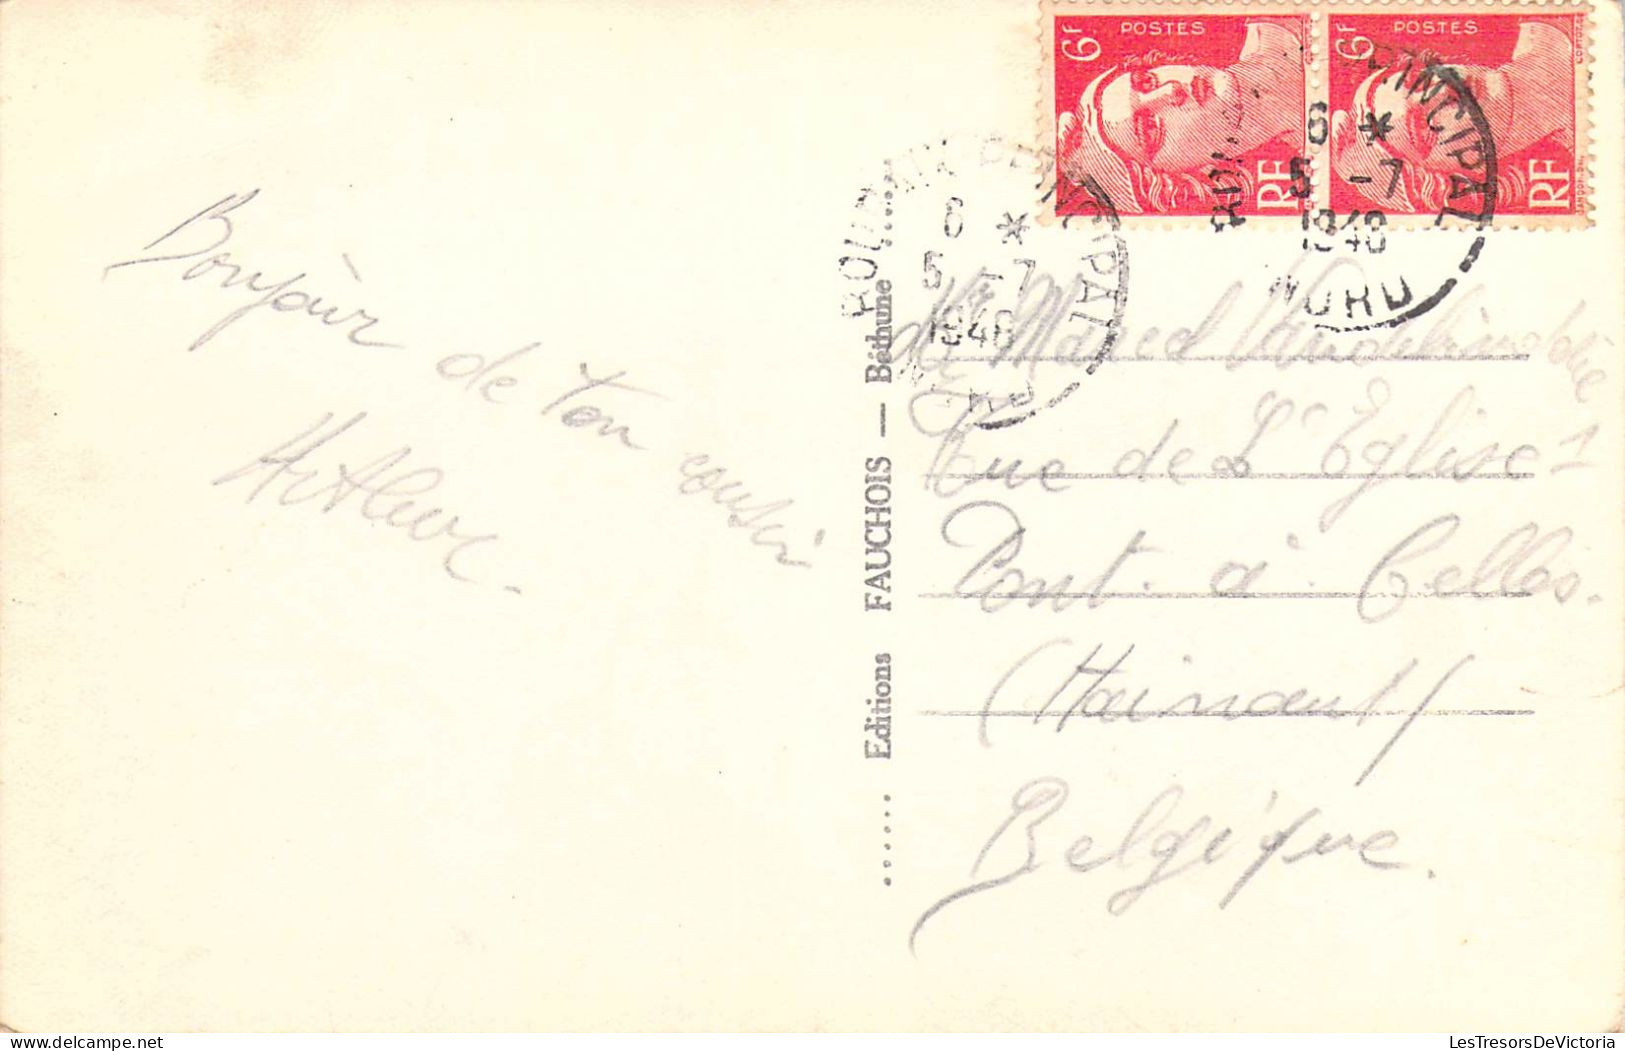 Bonjour de ton cousin
Arthur.
Editions FAUCHOIS — Béthune
6F POSTES RF
6F POSTES RF
ROUBAIX PRINCIPAL
6 *
5 -7
1948
NORD
ROUBAIX PRINCIPAL
6 *
5 -7
1948
NORD
Marcel
Rue de L'Eglise 1
Pont-à-Celles.
(Hainaut)
Belgique.
LesTresorsDeVictoria